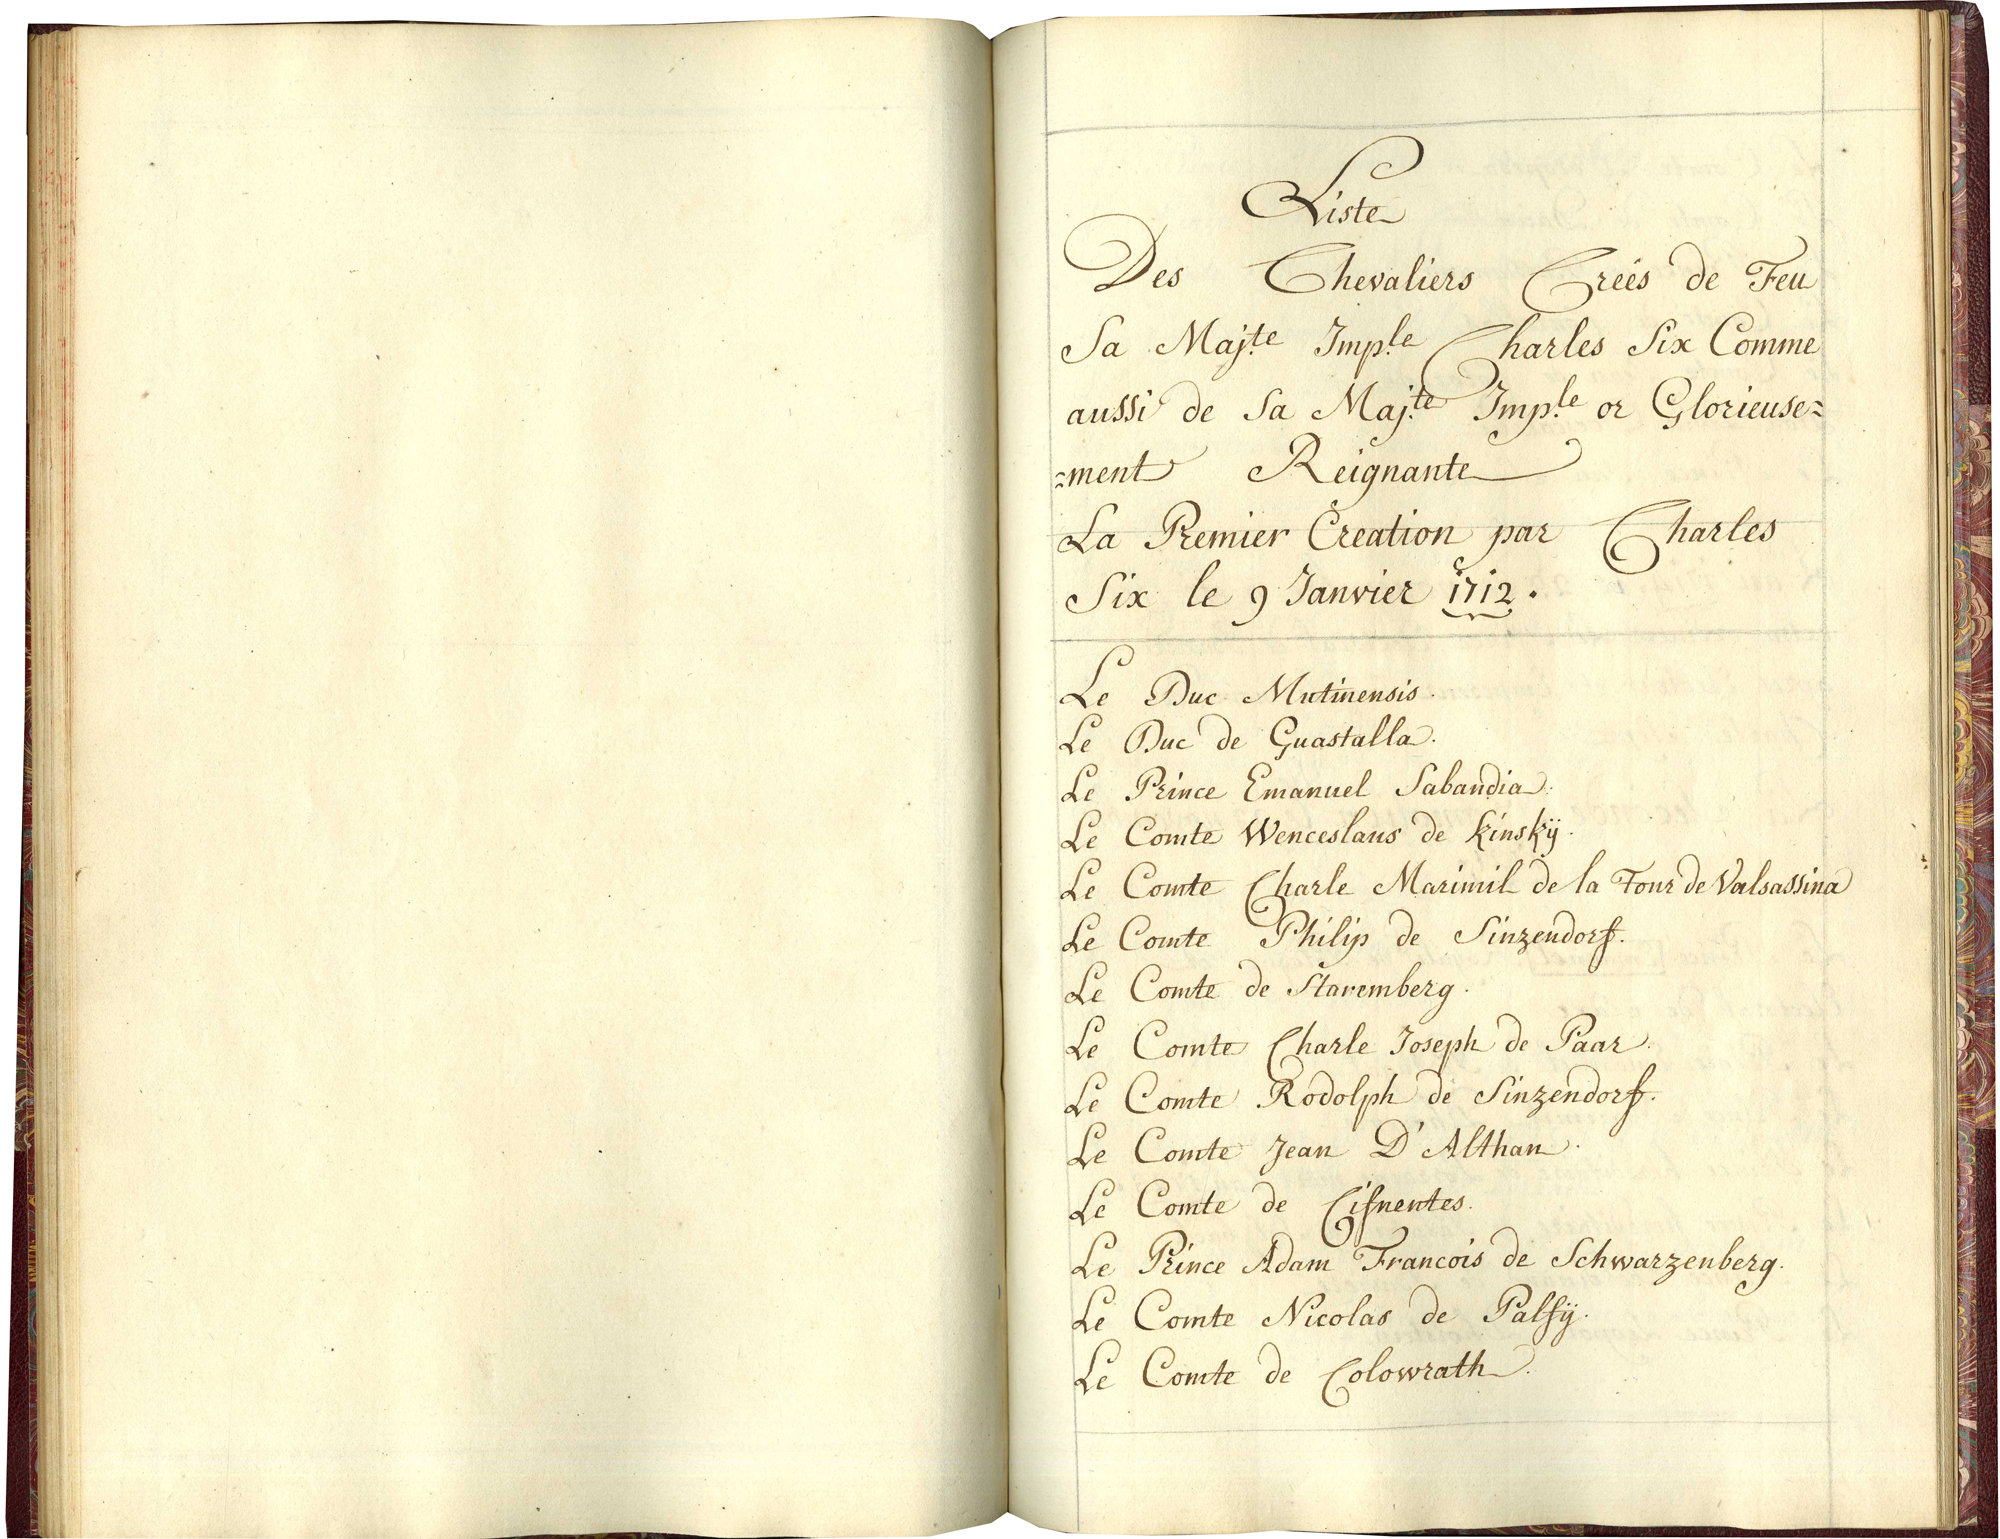 Liste
Des Chevaliers Creés de Feu
Sa Maj.te Imp.le Charles Six Comme
aussi de Sa Maj.te Imp.le or Glorieuse=
=ment Reignante
La Premier Creation par Charles
Six le 9 Janvier 1712.
Le Duc Mutinensis.
Le Duc de Guastalla.
Le Prince Emanuel Sabandia.
Le Comte Wenceslaus de Kinskÿ.
Le Comte Charle Maximil de la Tour de Valsassina
Le Comte Philip de Sinzendorf.
Le Comte de Staremberg.
Le Comte Charle Joseph de Paar.
Le Comte Rodolph de Sinzendorf.
Le Comte Jean D'Althan.
Le Comte de Cifnentes.
Le Prince Adam Francois de Schwarzenberg.
Le Comte Nicolas de Palfÿ.
Le Comte de Colowrath.